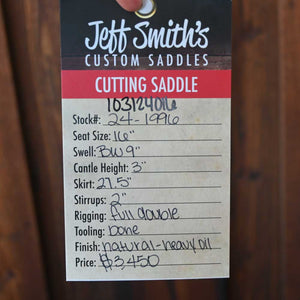 Jeff Smith's
CUSTOM SADDLES
CUTTING SADDLE
103124016
Stock#: 24-1996
Seat Size: 16"
Swell: BW 9"
Cantle Height: 3"
Skirt: 27.5"
Stirrups: 2"
Rigging: full double
Tooling: bone
Finish: natural-heavy oil
Price: $3,450